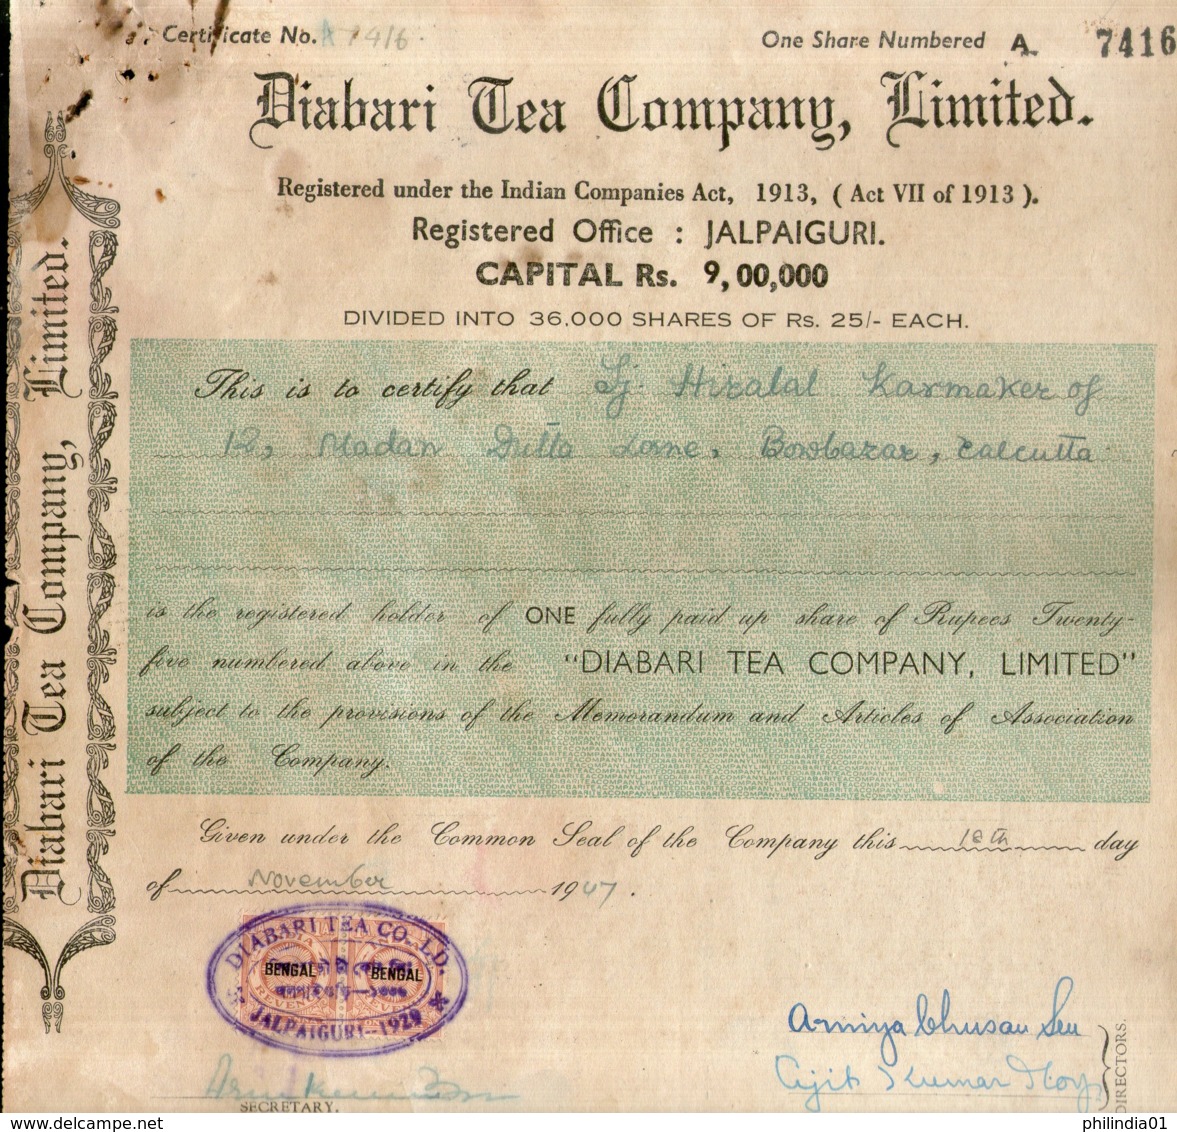 Certificate No. A 7416.
One Share Numbered A. 7416
Diabari Tea Company, Limited.
Registered under the Indian Companies Act, 1913, ( Act VII of 1913 ).
Registered Office : JALPAIGURI.
CAPITAL Rs. 9,00,000
DIVIDED INTO 36,000 SHARES OF Rs. 25/- EACH.
This is to certify that Sj. Hiralal Karmaker of
12, Madan Dutta Lane, Bowbazar, Calcutta
is the registered holder of ONE fully paid up share of Rupees Twenty-
five numbered above in the "DIABARI TEA COMPANY, LIMITED"
subject to the provisions of the Memorandum and Articles of Association
of the Company.
Given under the Common Seal of the Company this 18th day
of November 1947.
DIABARI TEA CO. LD.
BENGAL BENGAL
JALPAIGURI--1929
Amiya Bhusan Sen
Ajit Kumar Roy
DIRECTORS.
SECRETARY.
Diabari Tea Company, Limited.
delcampe.net
philindia01